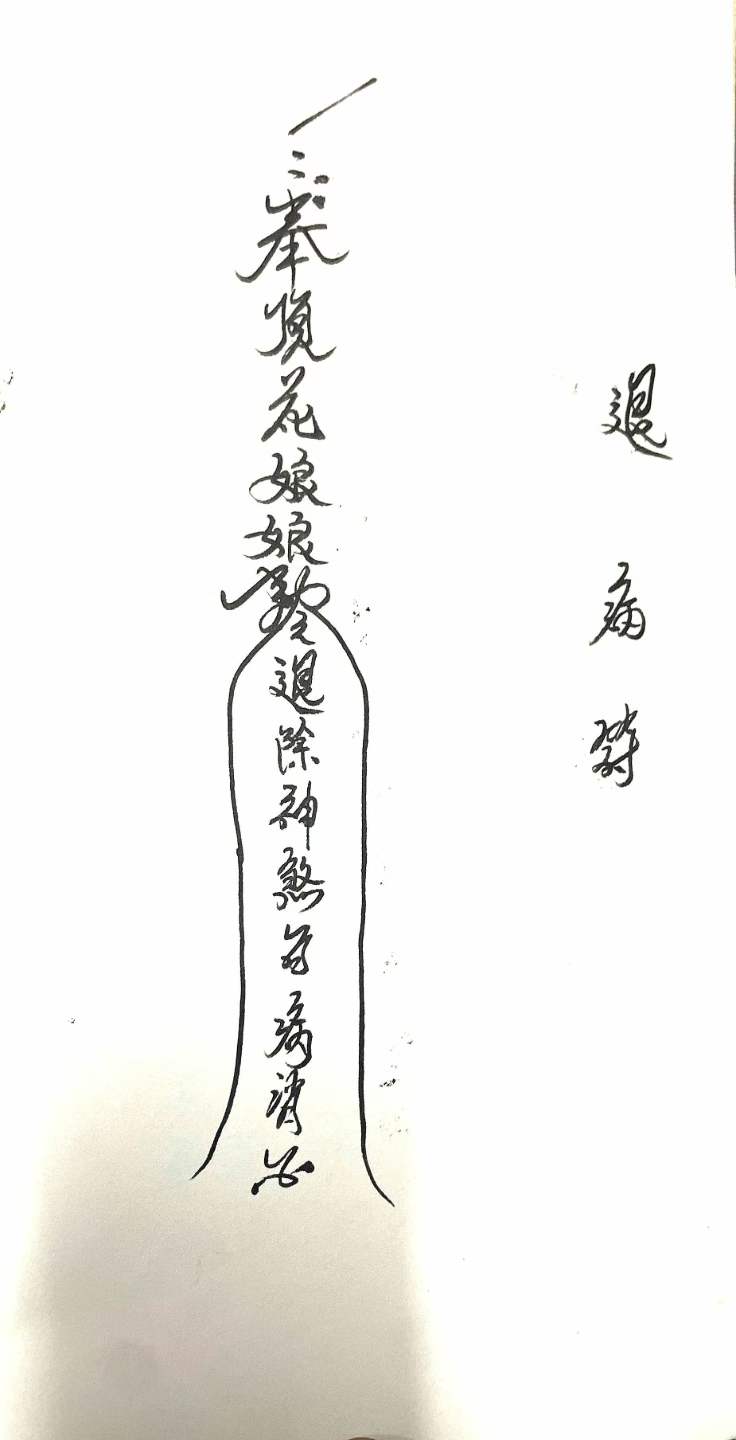 退病符
奉頂花娘娘勅令退除神煞百病消